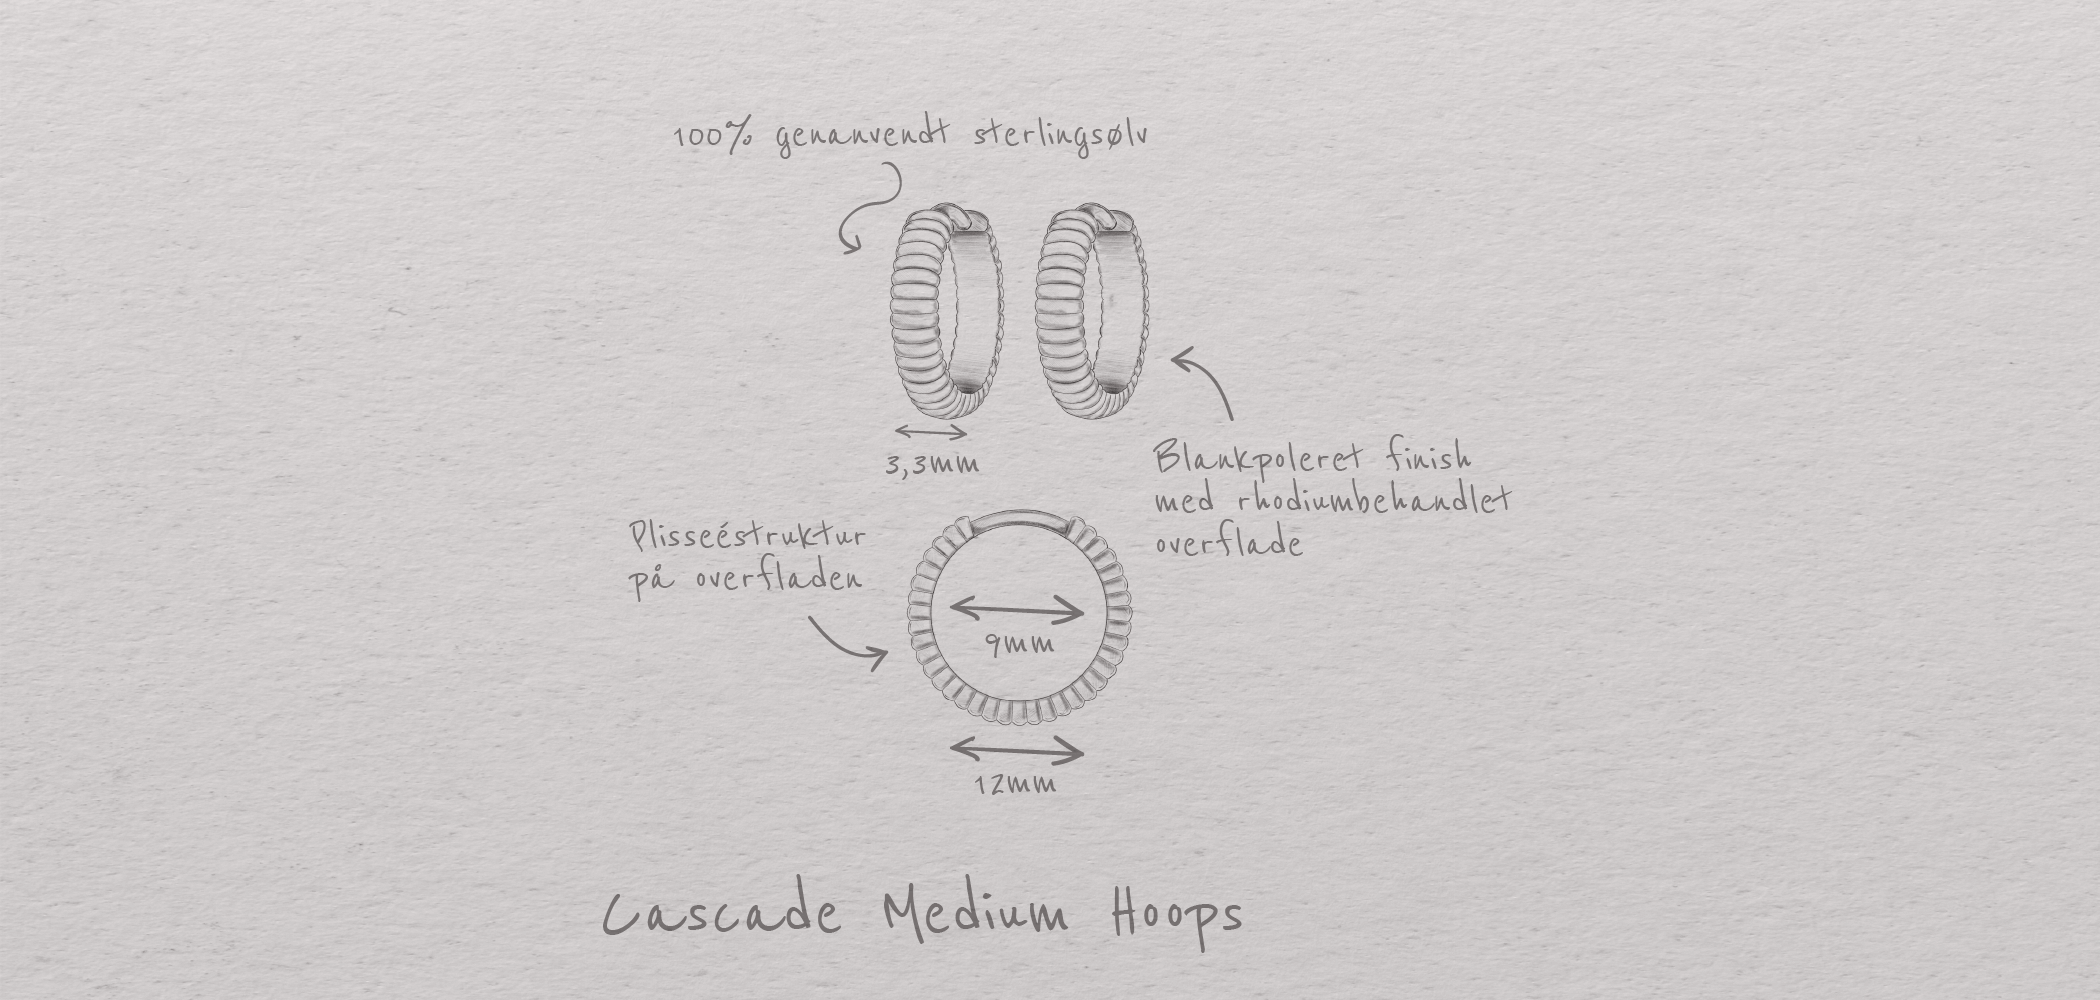 100% genanvendt sterlingsølv
3,3mm
Blankpoleret finish
med rhodiumbehandlet
overflade
Plisseéstruktur
på overfladen
9mm
12mm
Cascade Medium Hoops